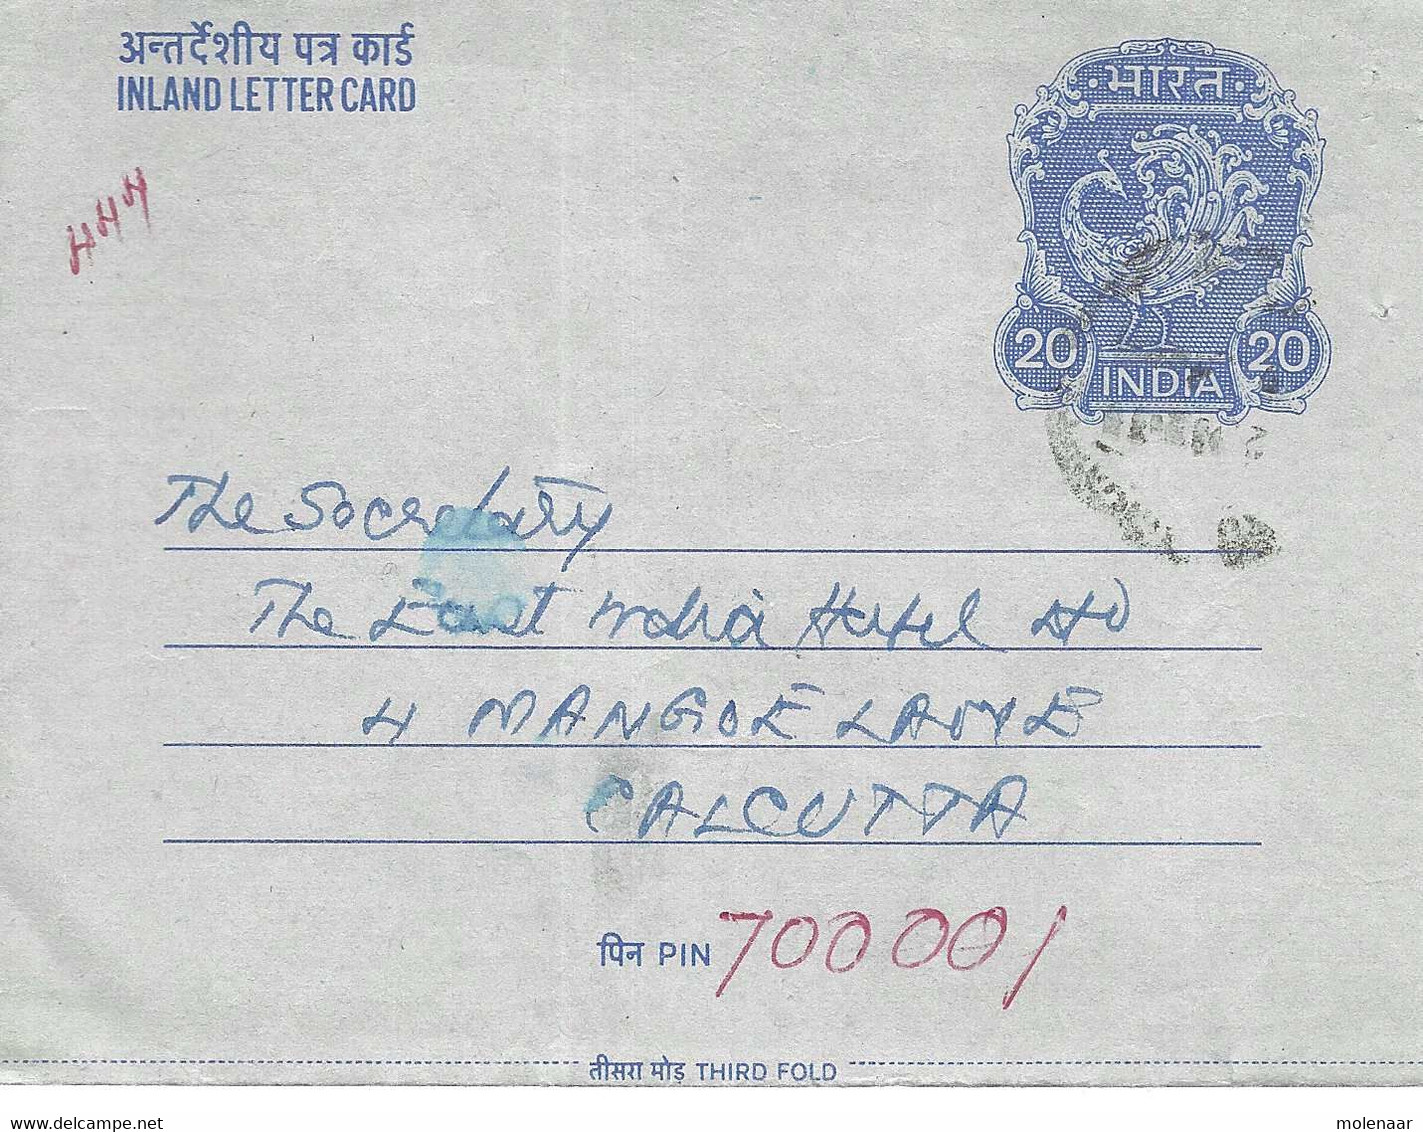 अन्तर्देशीय पत्र कार्ड
INLAND LETTER CARD
भारत
20 20
INDIA
The Secretary
The East India Hotel
4 MANGOE LANE
CALCUTTA
पिन PIN 700001
तीसरा मोड़ THIRD FOLD
www.delcampe.net
molenaar